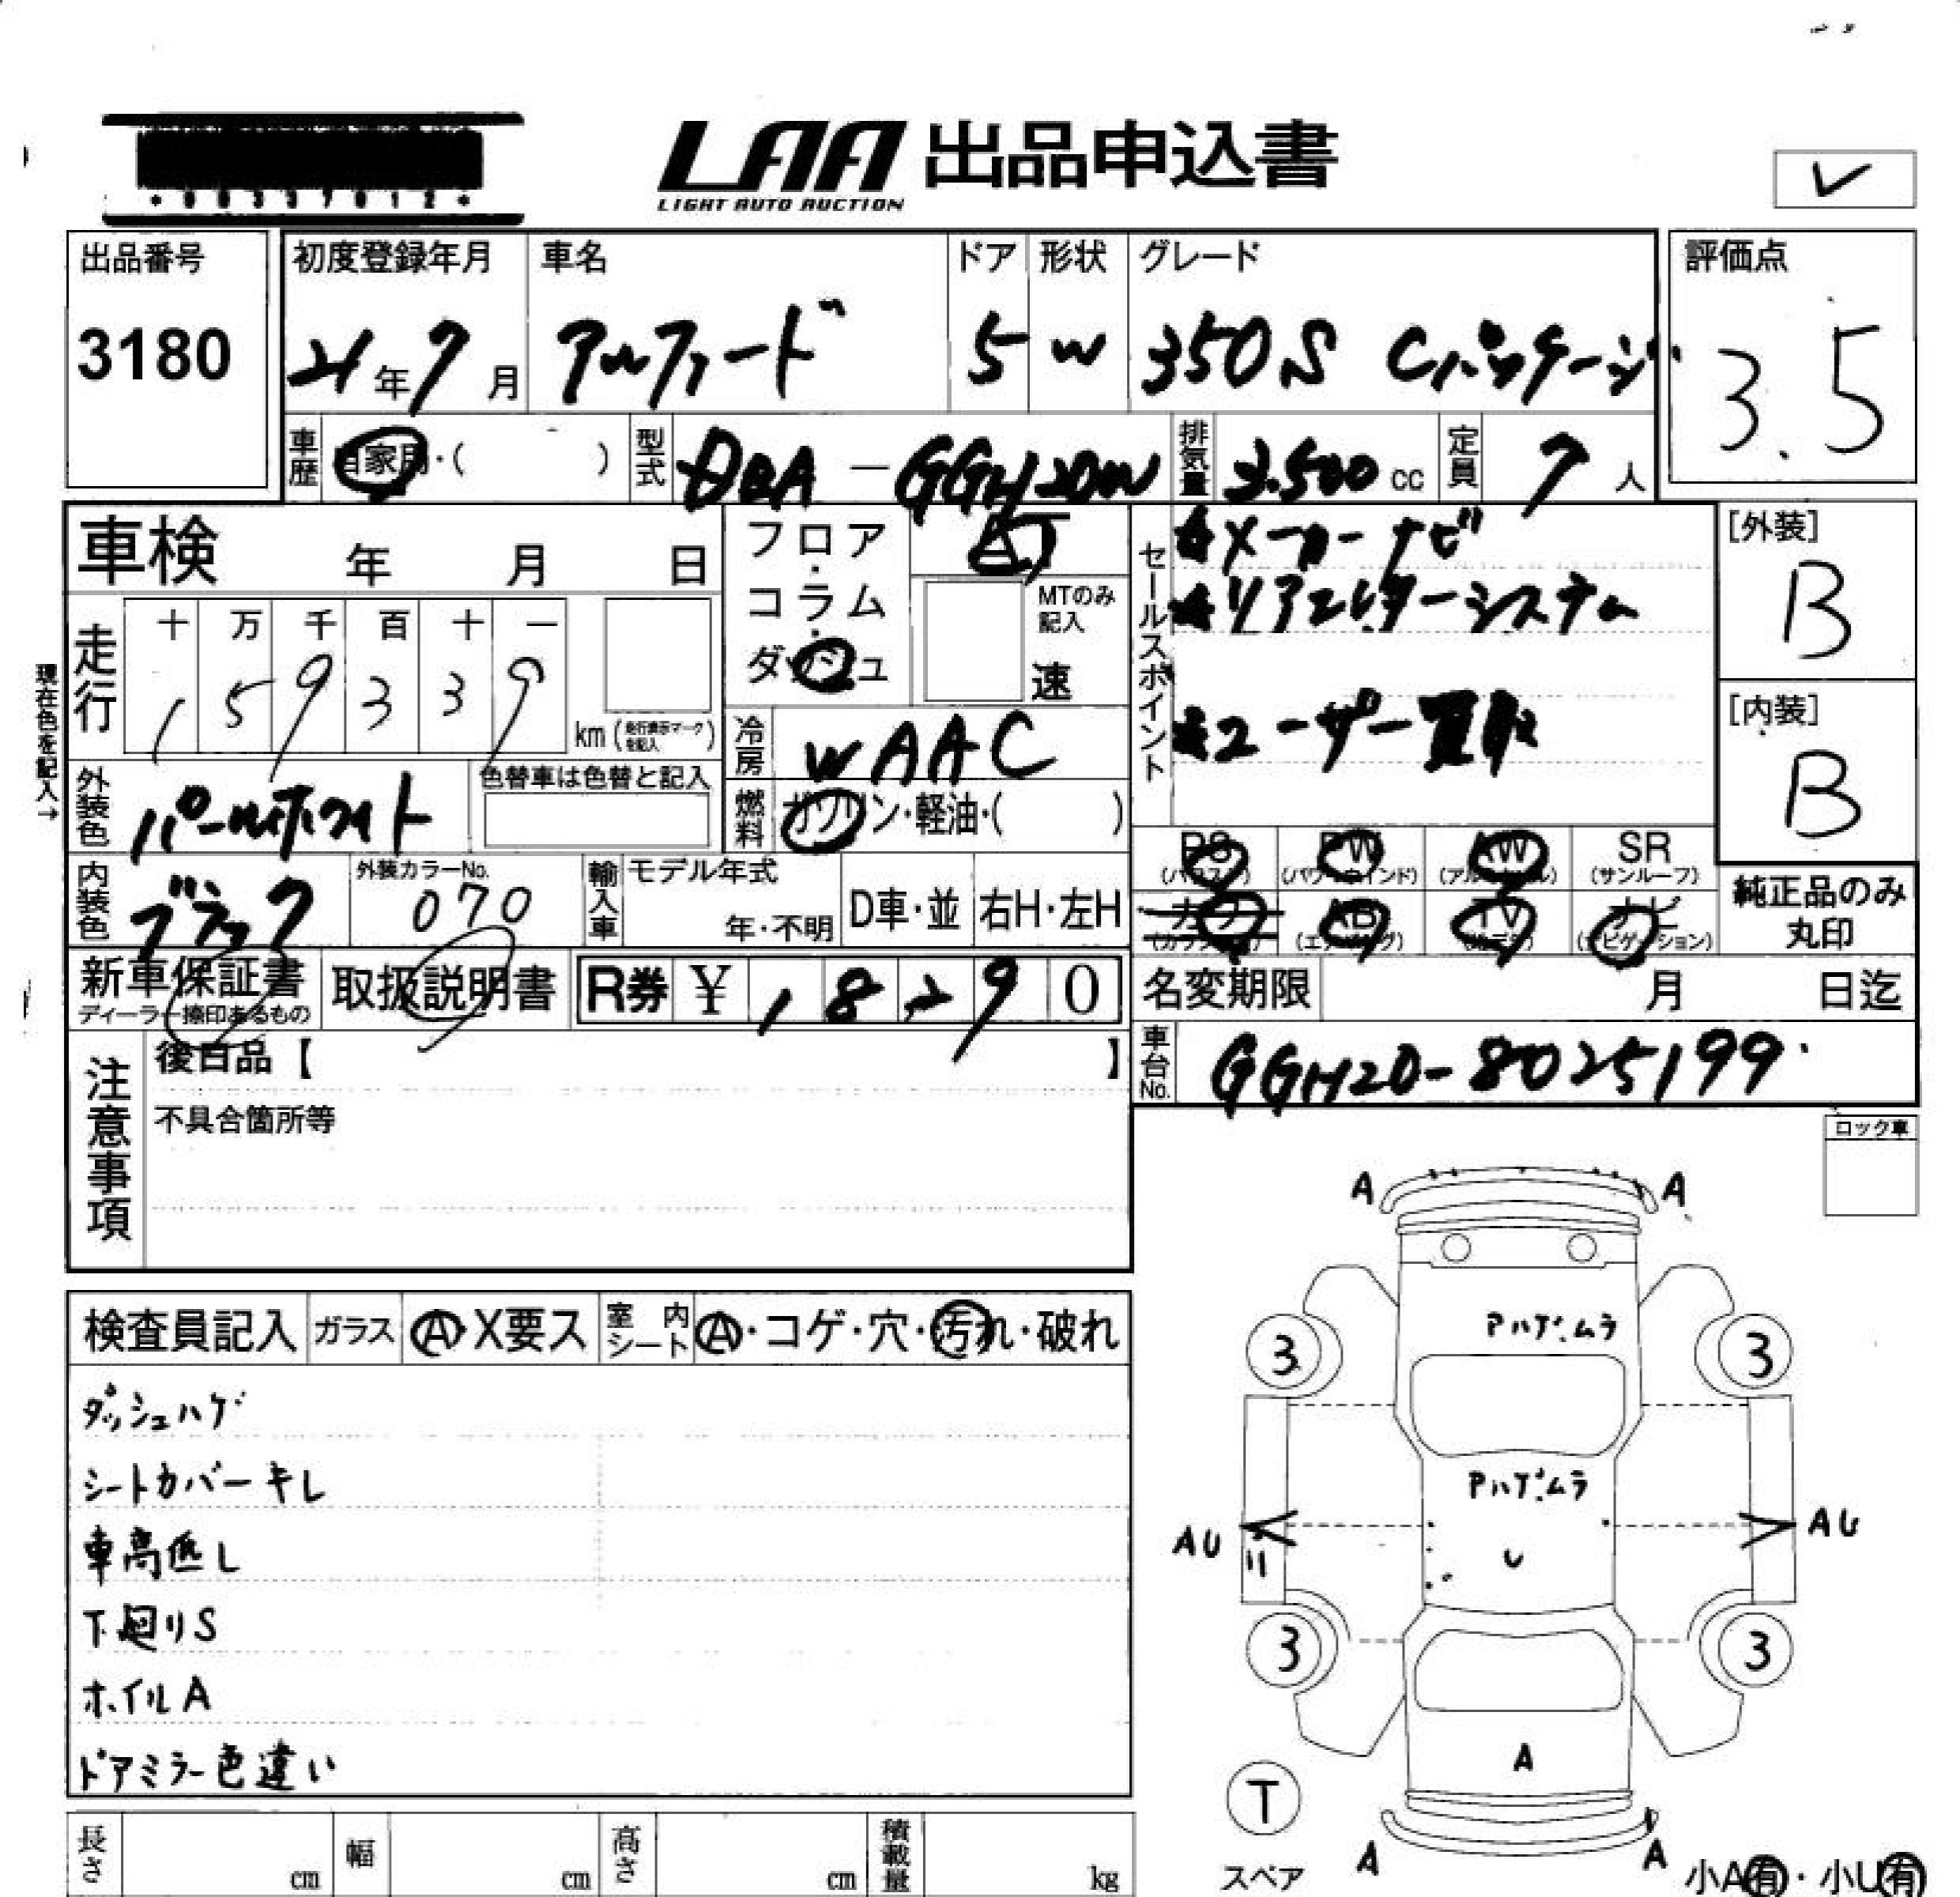 LAA 出品申込書
LIGHT AUTO AUCTION
*00337012*
出品番号
3180
初度登録年月 車名 ドア 形状 グレード
21年7月 アルファード 5 W 350S Cパッケージ
評価点
3.5
車歴 自家用・( ) 型式 DBA-GGH20W 排気量 3.500cc 定員 7人
車検 年 月 日
フロア・コラム・ダッシュ
AT
MTのみ記入
速
セールスポイント
☆メーカーナビ
☆リアエンターシステム
☆ユーザー買取
[外装]
B
[内装]
B
走行
十 万 千 百 十 一
1 5 9 3 3 9
km(走行表示マークを記入)
現在色を記入→
外装色 パールホワイト
色替車は色替と記入
冷房 WAAC
燃料 ガソリン・軽油・( )
内装色 ブラック
外装カラーNo.
070
輸入車 モデル年式
年・不明
D車・並 右H・左H
PS PW AW SR
(パワステ) (パワーウインド) (アルミホイル) (サンルーフ)
カワ AB TV ナビ
(カワシート) (エアバッグ) (テレビ) (ナビゲーション)
純正品のみ
丸印
新車保証書
ディーラー捺印あるもの
取扱説明書
R券 ¥ 18290
名変期限 月 日迄
車台No. GGH20-8025199
注意事項
後日品【 】
不具合箇所等
ロック車
検査員記入 ガラス A・X要ス 室内シート A・コゲ・穴・汚れ・破れ
ダッシュハゲ
シートカバーキレ
車高低し
下廻りS
ホイルA
ドアミラー色違い
A A
Pハゲ.ムラ
3 3
Pハゲ.ムラ
AU AU
U
3 3
A
T
スペア
A A
小A有・小U有
長さ cm 幅 cm 高さ cm 積載量 kg